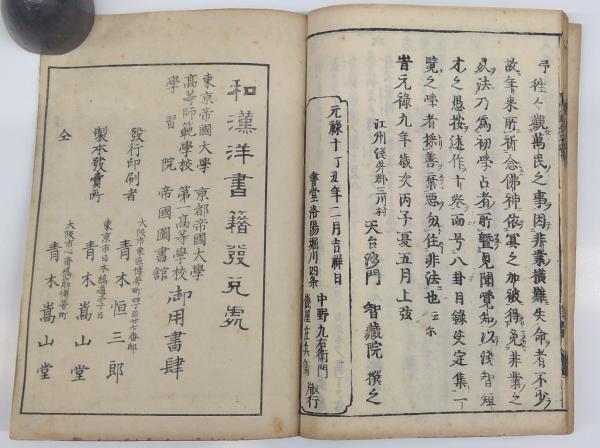 予徃々觀萬民之事因非業橫難失命者不少
故年來所祈念佛神依冥之加被得免非業之
災法乃爲初學占者所暨見聞覺知以淺智短
才之愚按述作十祭而号八卦目錄失定集一
覽之嗤者採善棄惡勿住非法也云尔
江州淺井郡三川村
天台沙門 智藏院 撰之
旹元祿九年歲次丙子夏五月上弦
元祿十丁丑年二月吉祥日
書堂洛陽堀川四条
中野九右衞門
版行
和漢洋書籍發兌處
東京帝國大學 京都帝國大學
高等師範學校 第一高等學校 御用書肆
學習院 帝國圖書館
發行印刷者
大阪市東區博勞町四丁目廿七番邸
青木恒三郎
製本發賣所
東京市日本橋通壱丁目
青木嵩山堂
仝
大阪市心齋橋筋博勞町
青木嵩山堂